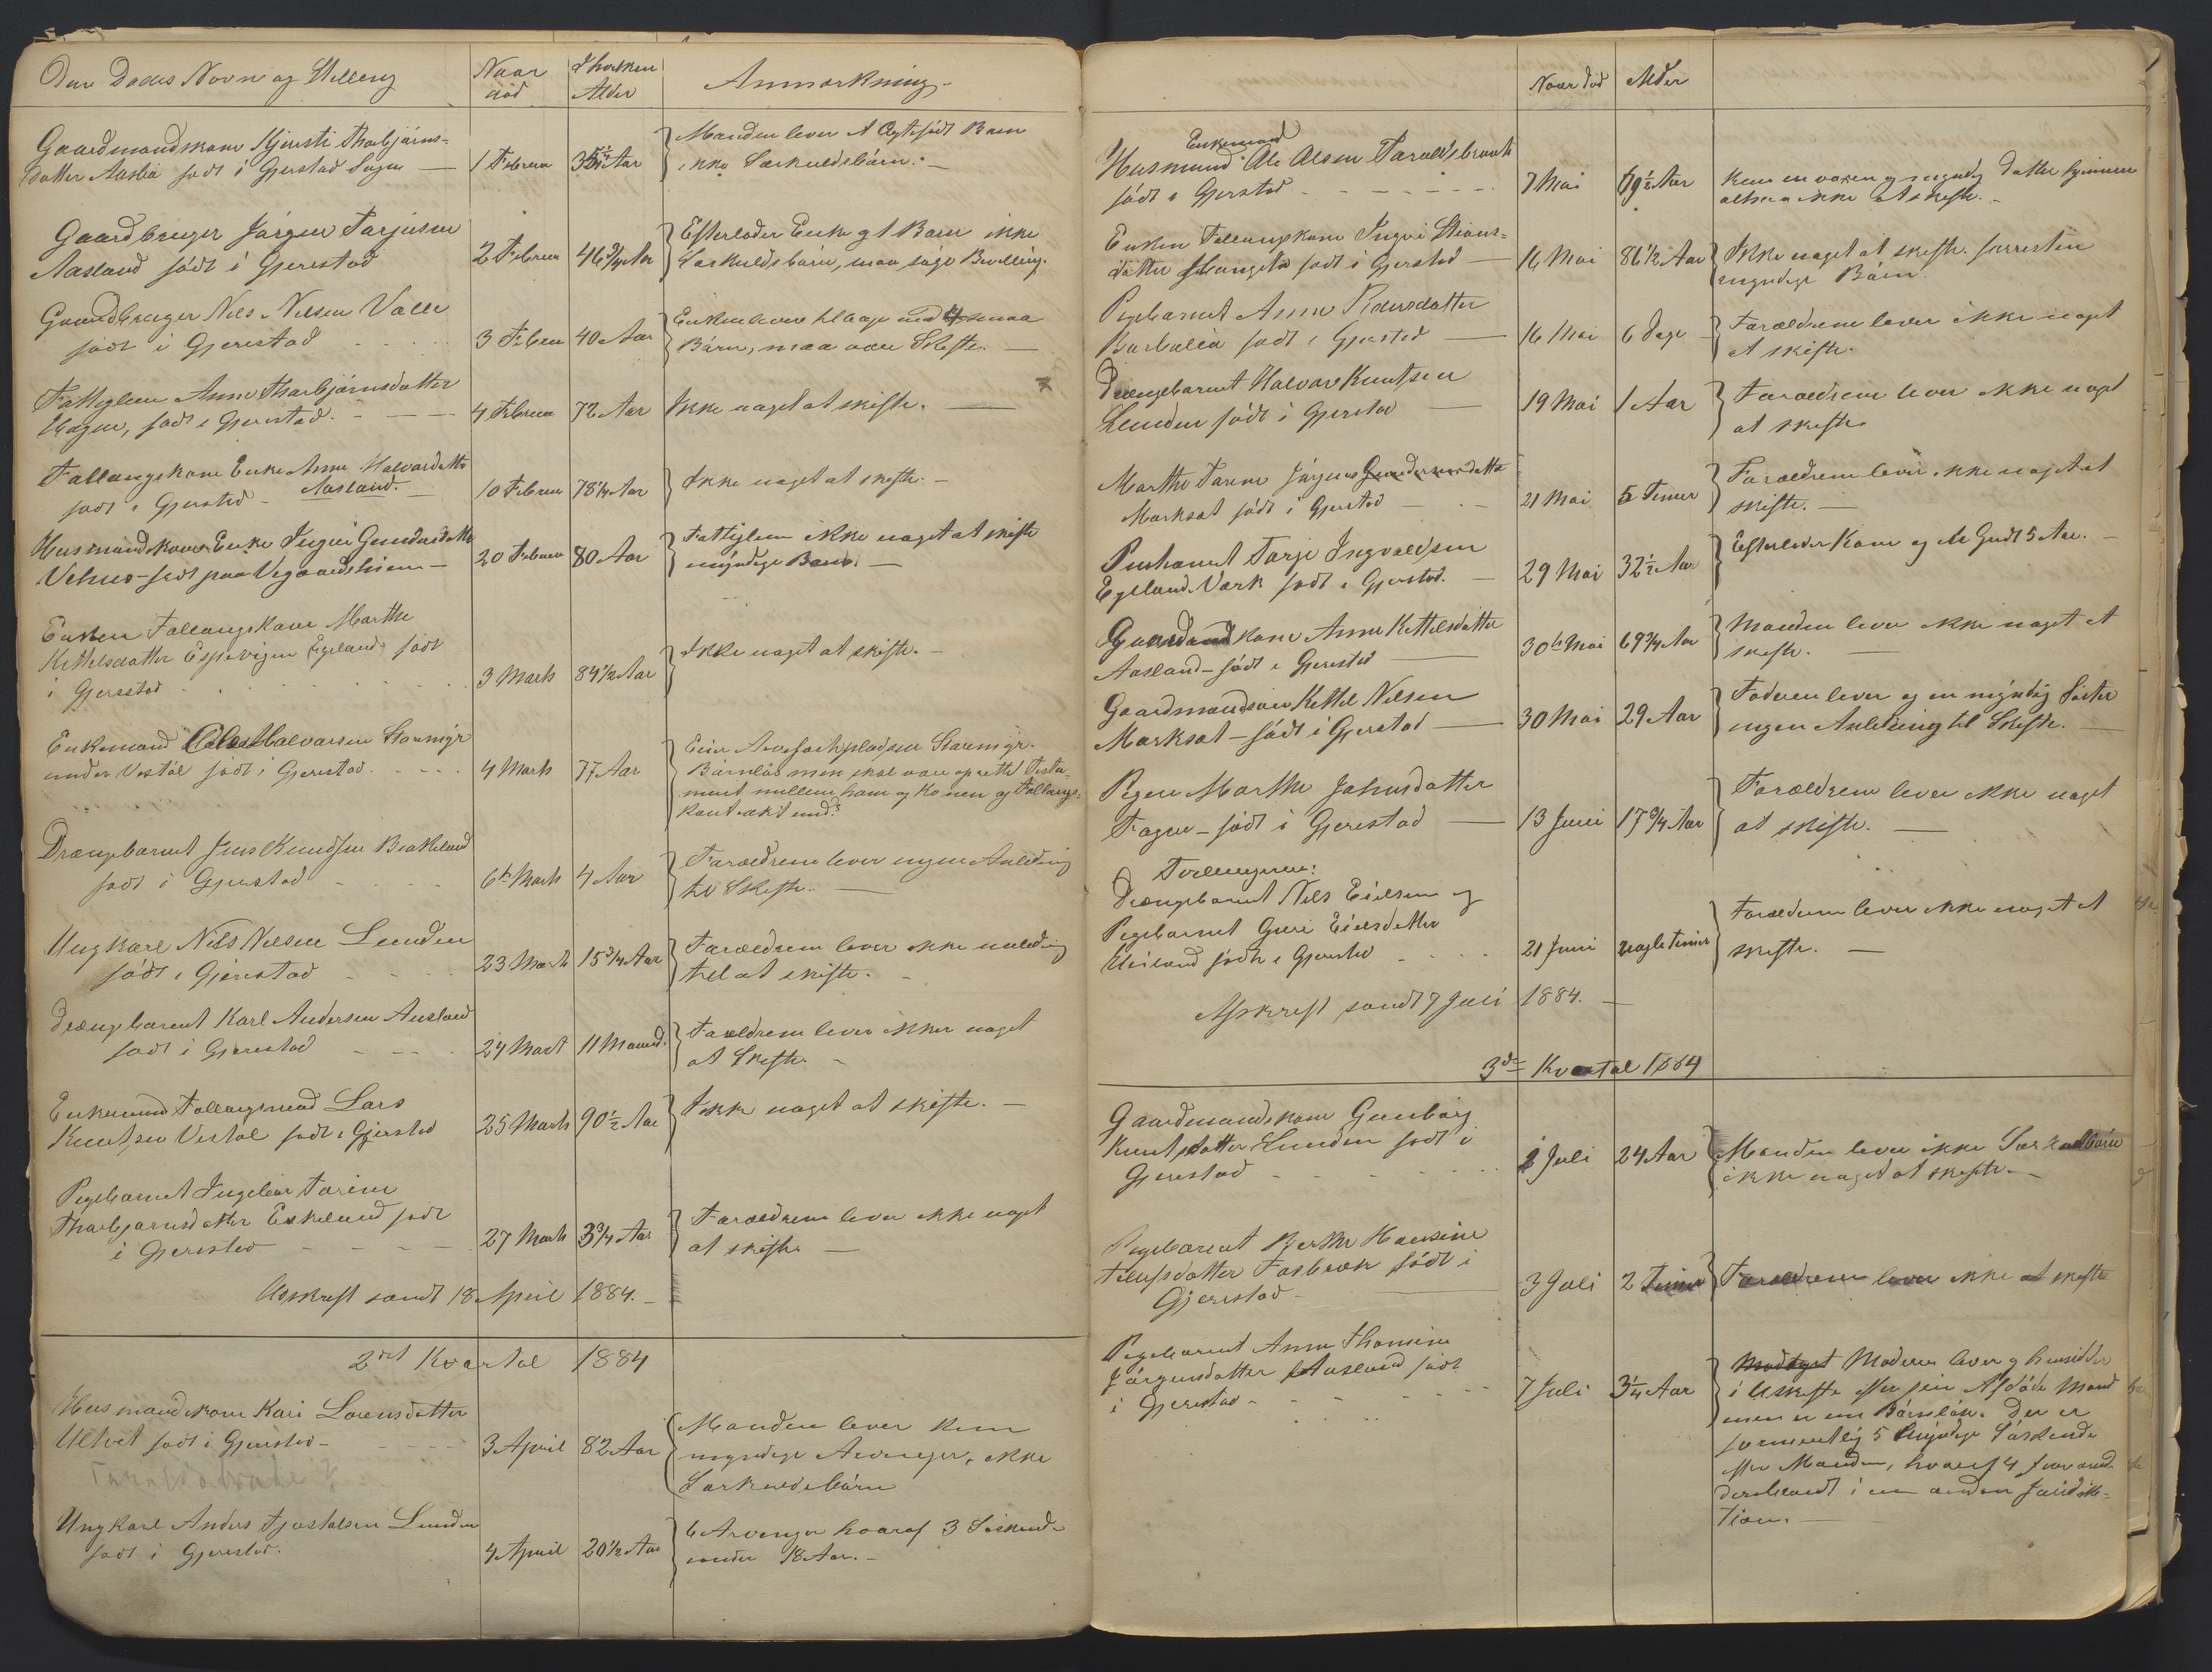 Den Dødes Navn og Stilling
Naar død
I hvilken Alder
Anmærkning
Gaardmandskone Kjersti Thorbjørns-
datter Aasbø født i Gjerstad Sogn —
1 Februar
Aar
Manden lever 1 Ægtefødt Barn
ikke Særkuldsbørn. —
Gaardbruger Jørgen Tarjusen
Aasland født i Gjerestad
2 Februar
46 3/4 Aar
Efterlader Enke og 1 Barn ikke
Særkuldsbørn, maa søge Bevilling.
Gaardbruger Nils Nilsen Valle
født i Gjerestad
3 Februar
40 Aar
Enken lever tilbage med 4 smaa
Børn, maa være Skifte. —
Fattiglem Anne Thorbjørnsdatter
Hagen, født i Gjerestad. —
4 Februar
72 Aar
Ikke noget at skifte. —
Follaugskone Enke Anne Halvorsdatter
født i Gjerstad — Aasland. —
10 Februar
78 1/4 Aar
Ikke noget at skifte. —
Husmandskone Enke Inger Gundersdatter
Vehus — født paa Vegaardsheien —
20 Februar
80 Aar
Fattiglem ikke noget at skifte
myndige Børn. —
Enken Follaugskone Marthe
Kittelsdatter Espevigen Egeland født
i Gjerestad
3 Marts
84 1/2 Aar
Ikke noget at skifte. —
Enkemand Halvorsen Stormyr
under Vestøl født i Gjerestad.
4 Marts
77 Aar
Eier Stormyr.
Barnløs men skal være oprettet Testa-
ment mellem ham og Konen og Follaugs-
kontrakt
Drængebarnet Jens Knudsen Brokeland
født i Gjerestad
6te Marts
4 Aar
Forældrene lever ingen Anledning
til Skifte. —
Ungkarl Nils Nilsen Lunden
født i Gjerestad
23 Marts
15 3/4 Aar
Forældrene lever ikke anledning
til at skifte. —
Drængebarnet Karl Andersen Ausland
født i Gjerestad
24 Mart
11 Maaned.
Forældrene lever ikke noget
at Skifte. —
Enkemand Follaugsmand Lars
Knutsen Vestøl født i Gjerstad
25 Marts
90 1/2 Aar
Ikke noget at skifte. —
Pigebarnet Ingebor Torine
Thorbjørnsdatter Eskelund født
i Gjerestad
27 Marts
3 3/4 Aar
Forældrene lever ikke noget
at skifte —
Udskrift sendt 18 April 1884. —
2det Kvartal 1884
Husmandskone Kari Lorensdatter
Ulltvet født i Gjerestad —
3 April
82 Aar
Manden lever kun
myndige Arvinger, ikke
Særkuldsbørn
Ungkarl Anders Tjøstolsen Lunden
født i Gjerestad.
4 April
20 1/2 Aar
6 Arvinger hvoraf 3 Søskende
under 18 Aar. —
Naar død
Alder
Enkemand
Husmand Ole Olsen Taraldsbraate
født i Gjerstad
7 Mai
69 1/2 Aar
Kun en voxen og myndig datter hjemme
altsaa ikke at skifte. —
Enken Follaugskone Ingri Steens-
datter født i Gjerstad —
16 Mai
86 1/2 Aar
Ikke noget at skifte. forresten
myndige Børn.
Pigebarnet Anne Pedersdatter
født i Gjerstad —
16 Mai
6 dage
Forældrene lever ikke noget
at skifte.
Drængebarnet Halvor Knutsen
Lunden født i Gjerstad —
19 Mai
1 Aar
Forældrene lever ikke noget
at skifte
Marthe Torine Jørgens Gundersensdatter
Morksat født i Gjerstad —
21 Mai
5 Timer
Forældrene lever ikke noget at
skifte. —
Tarje Ingvaldsen
Egelands Værk født i Gjerstad. —
29 Mai
32 1/2 Aar
Efterlader Kone og et Gudt 5 Aar. —
Gaardmandskone Anne Kittelsdatter
Aasland — født i Gjerestad —
30te Mai
69 3/4 Aar
Manden lever ikke noget at
skifte. —
Gaardmandsøn Kittel Nilsen
Morksat — født i Gjerstad —
30 Mai
29 Aar
Faderen lever og en myndig Søster
ingen Anledning til Skifte. —
Pigen Marthe Johnsdatter
Fogne — født i Gjerestad —
13 Juni
17 3/4 Aar
Forældrene lever ikke noget
at skifte. —
Tvillingerne:
Drængebarnet Nils Eielsen og
Pigebarnet Guri Eielsdatter
født i Gjerestad
21 Juni
nogle timer
Forældrene lever ikke noget at
skifte. —
Afskrift sendt 7 Juli 1884. —
3de Kvartal 1884
Gaardmandskone Gunborg
Knutsdatter Lunden født i
Gjerestad
Juli
24 Aar
Manden lever ikke Særkulbørn
ikke noget at skifte. —
Pigebarnet Berthe Hansine
født i
Gjerestad —
3 Juli
2 Timer
Forældrene lever ikke at skifte
Pigebarnet Anne Thomine
Jørgensdatter Aasland født
i Gjerestad —
7 Juli
3 1/4 Aar
Moderen lever og hensidder
i Uskifte efter sin Afdøde Mand
men er nu Barnløs. Der er
formentlig 5 Umyndige Søskende
efter Manden, hvoraf 4
i en anden Jurisdik-
tion. —